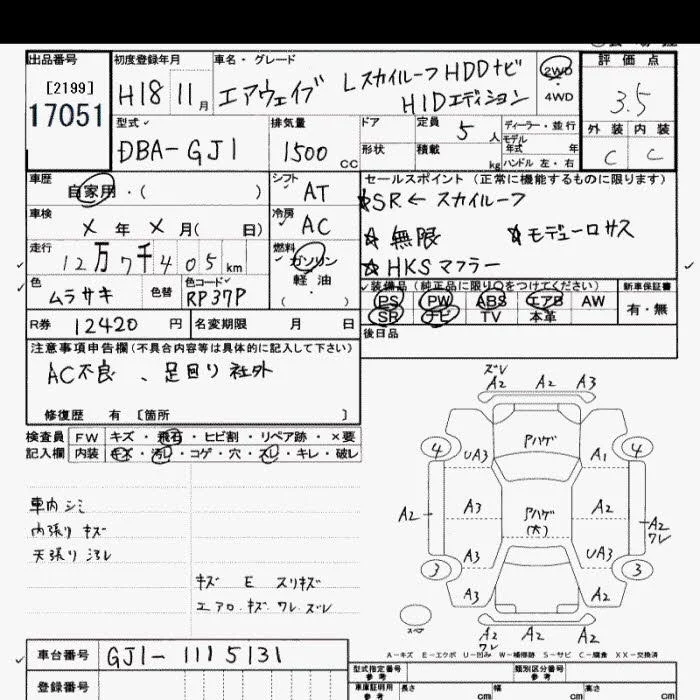 出品番号
[2199]
17051
初度登録年月
H18 11月
車名・グレード
エアウェイブ Lスカイルーフ HDDナビ
HIDエディション
2WD
・
4WD
評価点
3.5
外装 内装
C C
型式
DBA-GJ1
排気量
1500 cc
ドア
形状
定員 5人
積載 kg
ディーラー・並行
モデル年式 年
ハンドル 左・右
車歴
自家用・( )
シフト AT
車検
X年X月( 日)
冷房 AC
走行
12万7千405km
燃料
ガソリン
軽油
・
( )
色
ムラサキ
色替
色コード
RP37P
R券 12420円
名変期限 月 日
セールスポイント(正常に機能するものに限ります)
☆SR←スカイルーフ
☆無限 ☆モデューロサス
☆HKSマフラー
装備品(純正品に限り○をつけてください)
PS PW ABS エアB AW
SR ナビ TV 本革
新車保証書
有・無
後日品
注意事項申告欄(不具合内容等は具体的に記入して下さい)
AC不良、足回り社外
修復歴 有 [箇所 ]
検査員 FW キズ・飛石・ヒビ割・リペア跡・×要
記入欄 内装 キズ・汚レ・コゲ・穴・スレ・キレ・破レ
車内シミ
内張りキズ
天張り汚レ
キズ E スリキズ
エアロ.キズ.ワレ.ズレ
ズレ
A2 A2 A3
4 UA3 Aハゲ A1 4
A2 A3 Aハゲ(大) A2 A2ワレ
A3 UA3
3 3
A3 A2
スペア
A2 A2 A2
ワレ
A-キズ E-エクボ U-凹み W-補修跡 S-サビ C-腐食 XX-交換済
車台番号 GJ1-1115131
登録番号
型式指定番号 類別区分番号
参考 参考
車庫証明用 長さ 幅 高さ
参考 cm cm cm